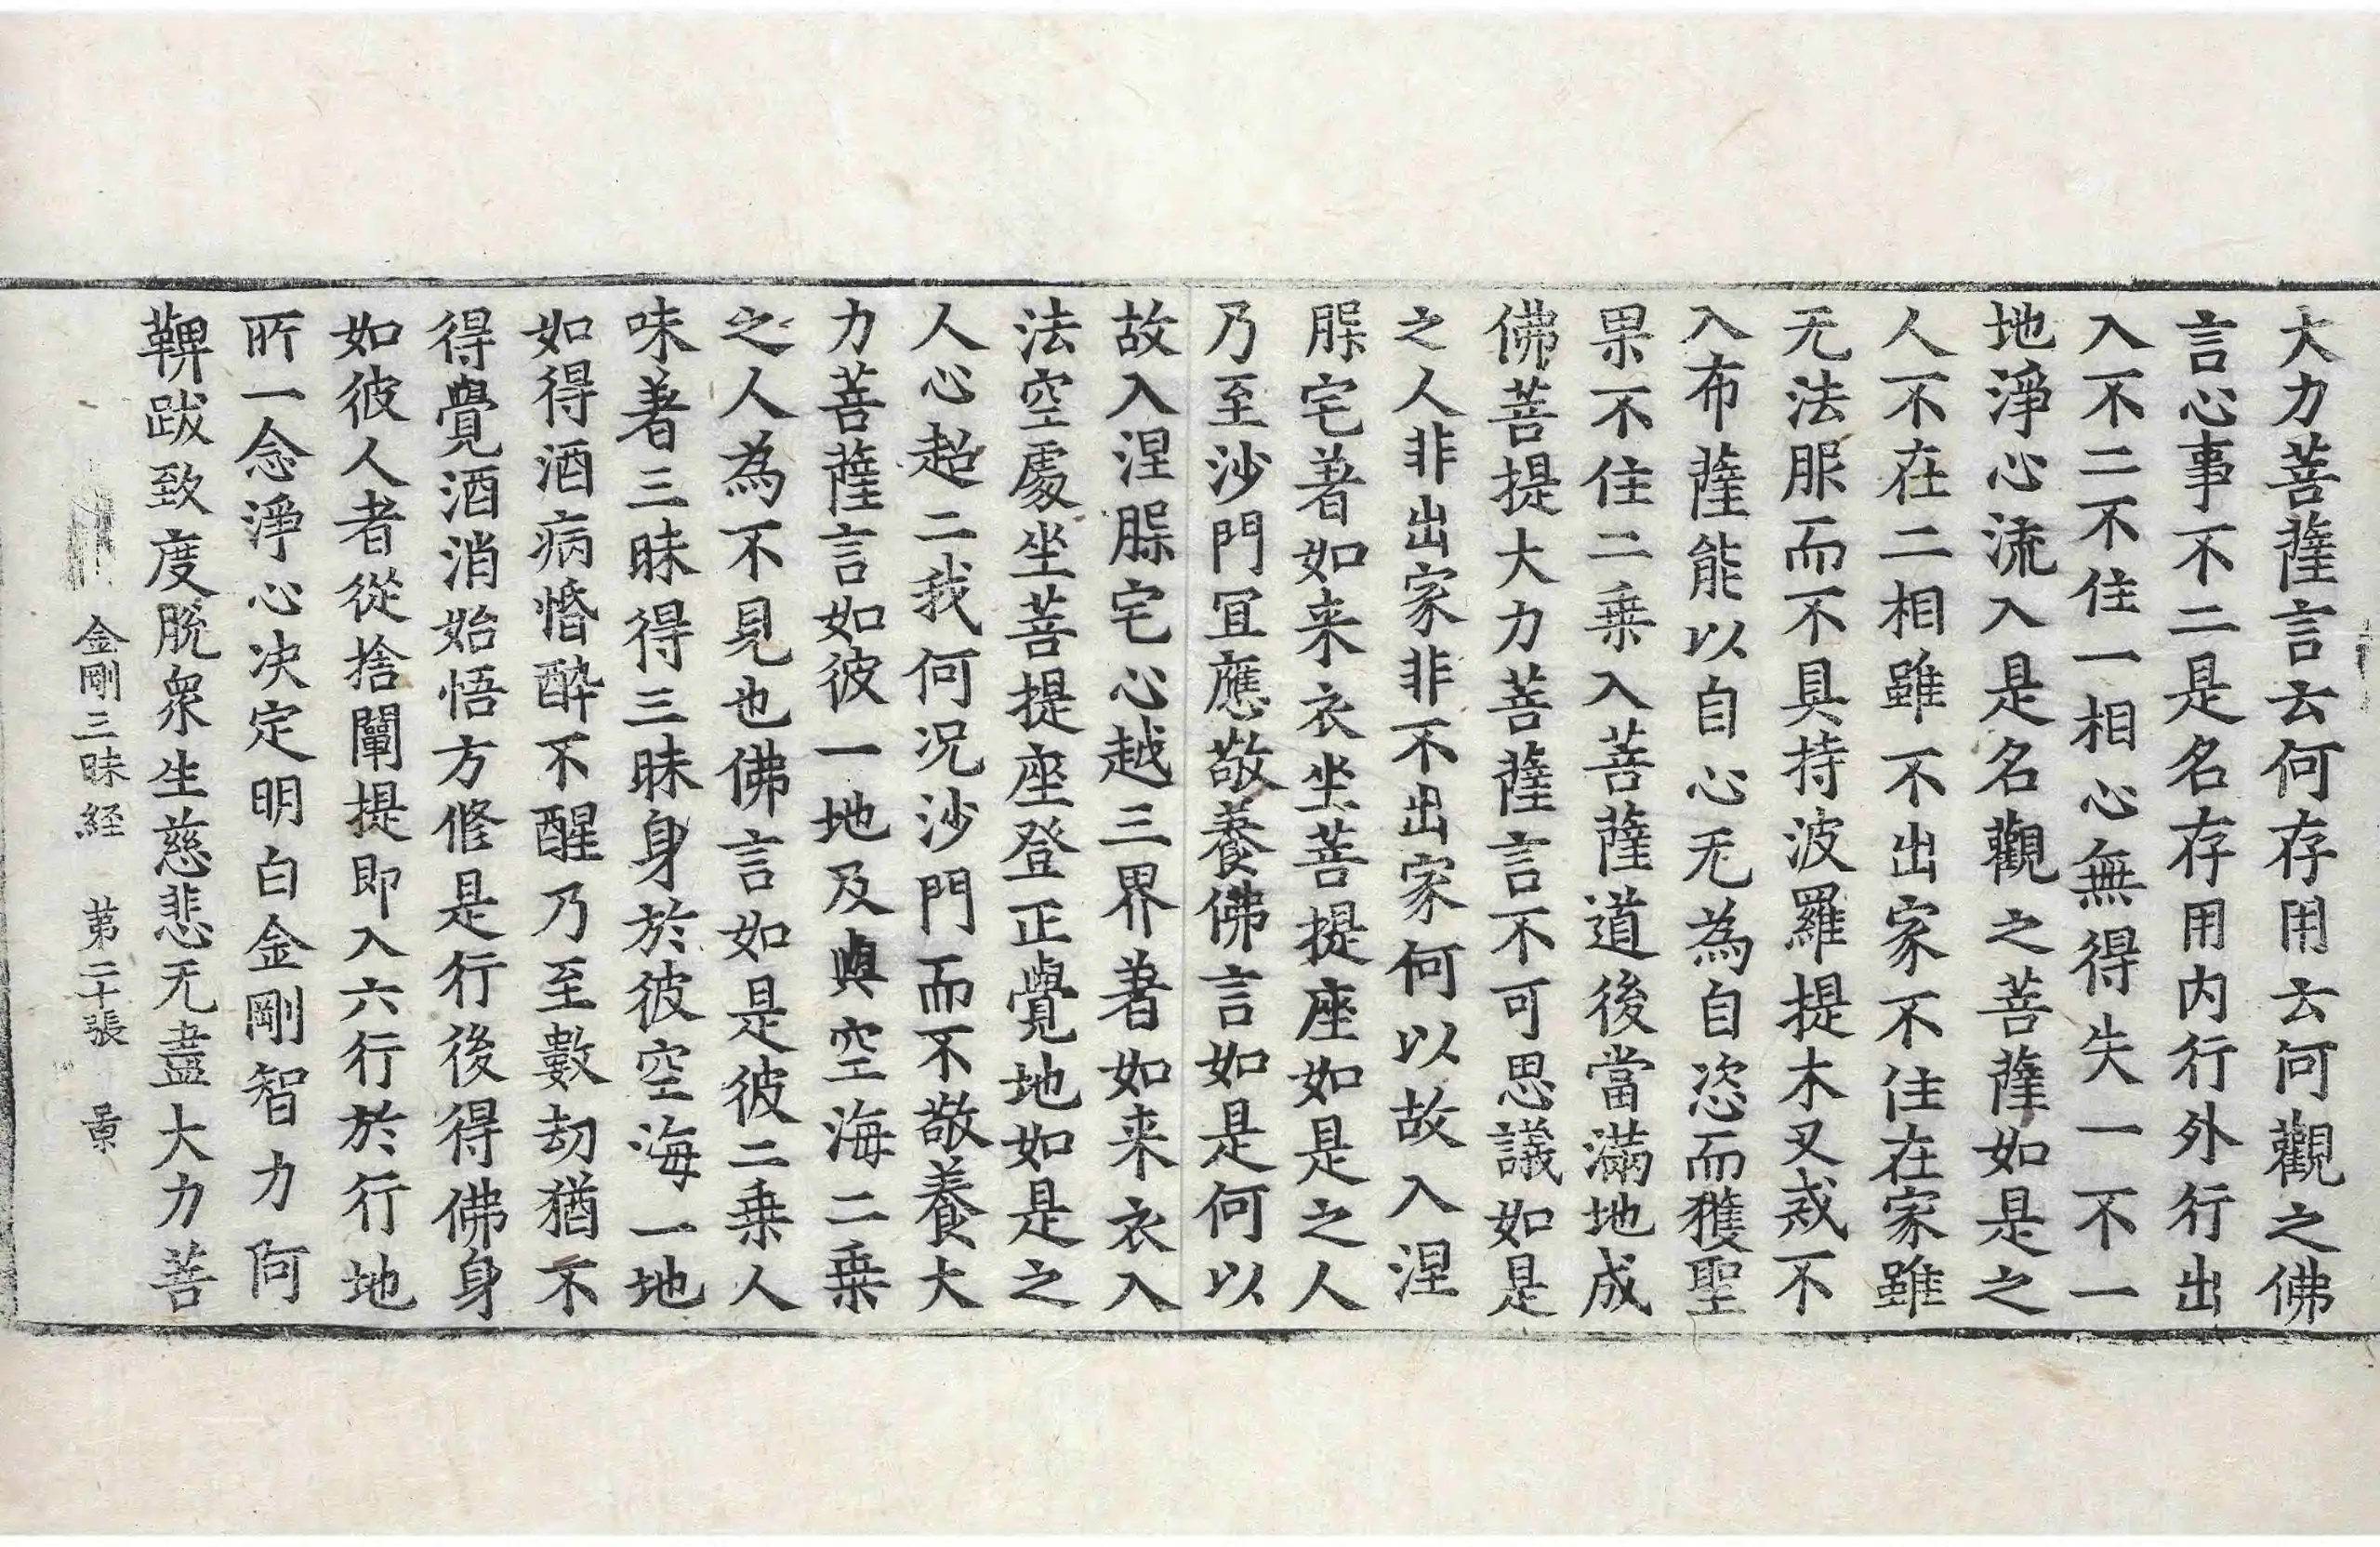 大力菩薩言云何存用云何觀之佛
言心事不二是名存用内行外行出
入不二不住一相心無得失一不一
地淨心流入是名觀之菩薩如是之
人不在二相雖不出家不住在家雖
无法服而不具持波羅提木叉戒不
入布薩能以自心无為自恣而獲聖
果不住二乗入菩薩道後當滿地成
佛菩提大力菩薩言不可思議如是
之人非出家非不出家何以故入涅
槃宅著如来衣坐菩提座如是之人
乃至沙門宜應敬養佛言如是何以
故入涅槃宅心越三界著如来衣入
法空處坐菩提座登正覺地如是之
人心超二我何况沙門而不敬養大
力菩薩言如彼一地及與空海二乗
之人為不見也佛言如是彼二乗人
味著三昧得三昧身於彼空海一地
如得酒病惛酔不醒乃至數劫猶不
得覺酒消始悟方修是行後得佛身
如彼人者從捨闡提即入六行於行地
所一念淨心决定明白金剛智力阿
鞞跋致度脱衆生慈悲无盡大力菩
金剛三昧経　第二十張